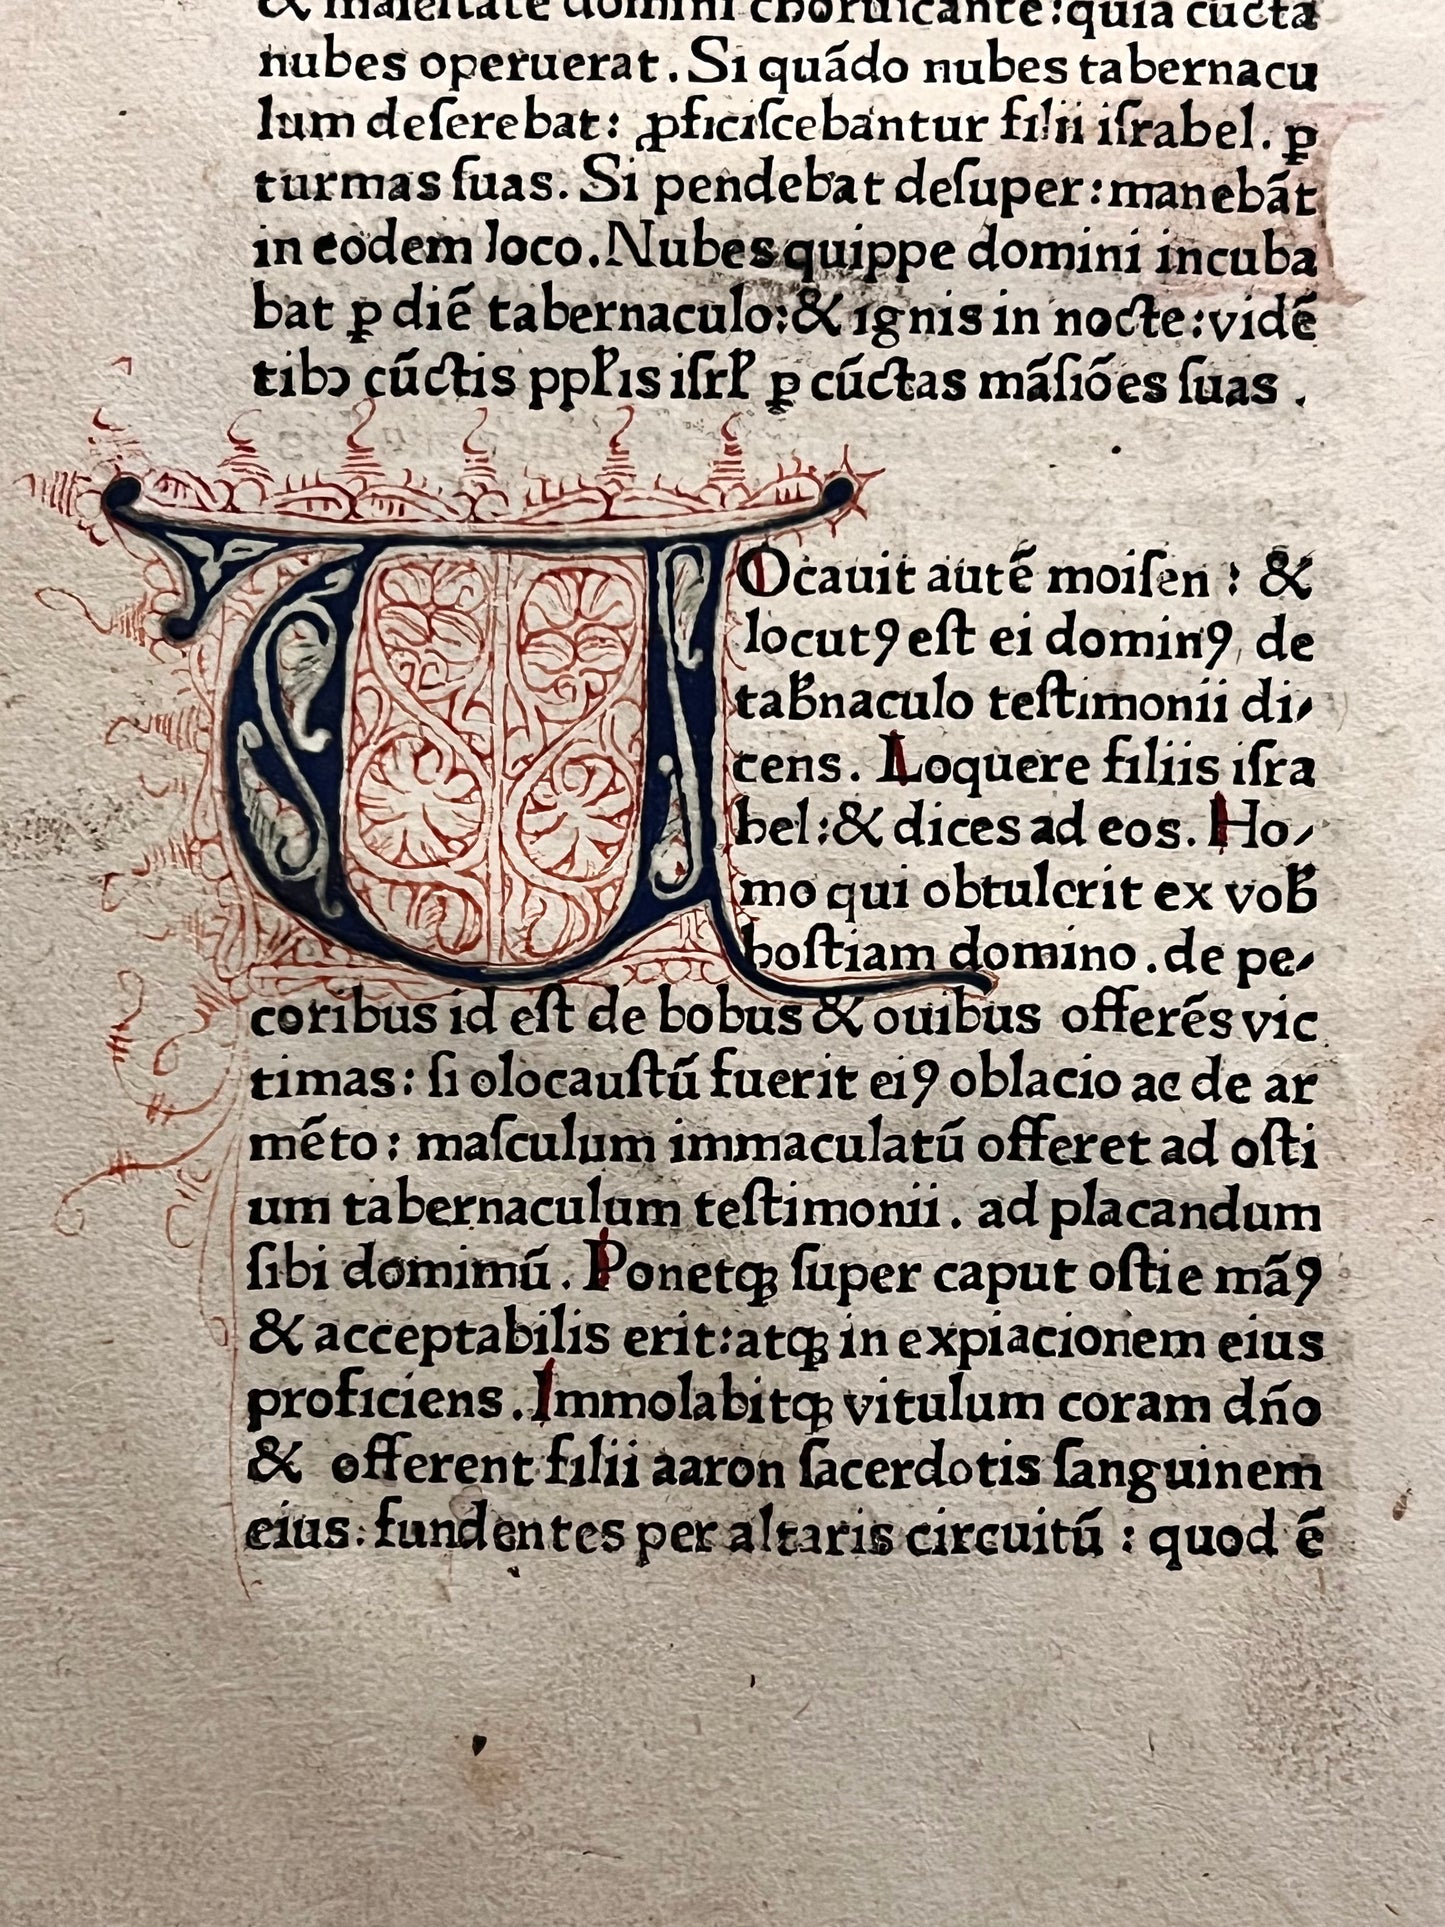 & maiestate domini choruscante:quia cũcta
nubes operuerat. Si quãdo nubes tabernacu
lum deſerebat: ꝓficiſcebantur filii iſrahel. ꝑ
turmas ſuas. Si pendebat deſuper:manebãt
in eodem loco. Nubes quippe domini incuba
bat ꝑ diẽ tabernaculo:& ignis in nocte:vidẽ
tibꝰ cũctis ppɫ'is iſrɫ' ꝑ cũctas mãſiões ſuas .
VOcauit autẽ moiſen : &
locutꝰ eſt ei dominꝰ de
tab̃naculo teſtimonii di⸗
cens. Loquere filiis iſra
hel:& dices ad eos. Ho⸗
mo qui obtulerit ex vob̃
hoſtiam domino . de pe⸗
coribus id eſt de bobus & ouibus offerẽs vic
timas: ſi olocauſtũ fuerit eiꝰ oblacio ac de ar
mẽto: maſculum immaculatũ offeret ad oſti
um tabernaculum teſtimonii. ad placandum
ſibi domimũ. Ponetqꝫ ſuper caput oſtie mãꝰ
& acceptabilis erit:atqꝫ in expiacionem eius
proficiens. Immolabitqꝫ vitulum coram dño
& offerent filii aaron ſacerdotis ſanguinem
eius: fundentes per altaris circuitũ : quod ẽ